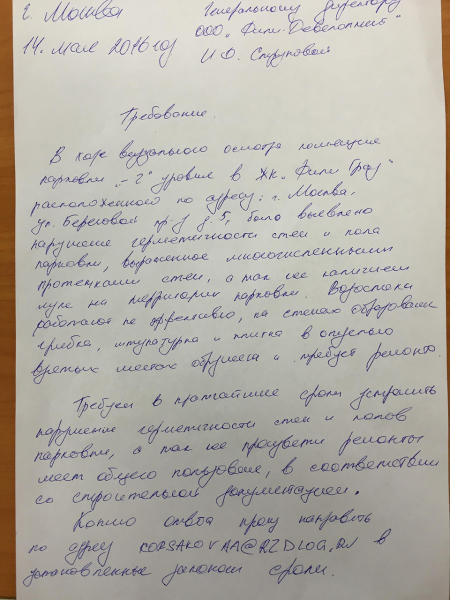 г. Москва Генеральному директору
ООО „Фили-Девелопмент"
14. мая 2016 год И.Ф. Струковой
Требование.
В ходе визуального осмотра помещение
парковки „-2" уровня в ЖК „Фили Град"
расположенного по адресу: г. Москва,
ул. Береговой пр-д д 5, было выявлено
нарушение герметичности стен и пола
парковки, выраженное многочисленными
протечками стен, а так же наличием
луж на территории парковки. Водостоки
работают не эффективно, на стенах образован
грибок, штукатурка и плитка в
местах обрушена и требует ремонта.
Требуем в кратчайшие сроки устранить
нарушение герметичности стен и полов
парковки, а так же произвести ремонты
мест общего пользования, в соответствии
со строительной документацией.
Копию ответа прошу направить
по адресу KORSAKOVAA@RZDLOG.RU в
установленные законом сроки.